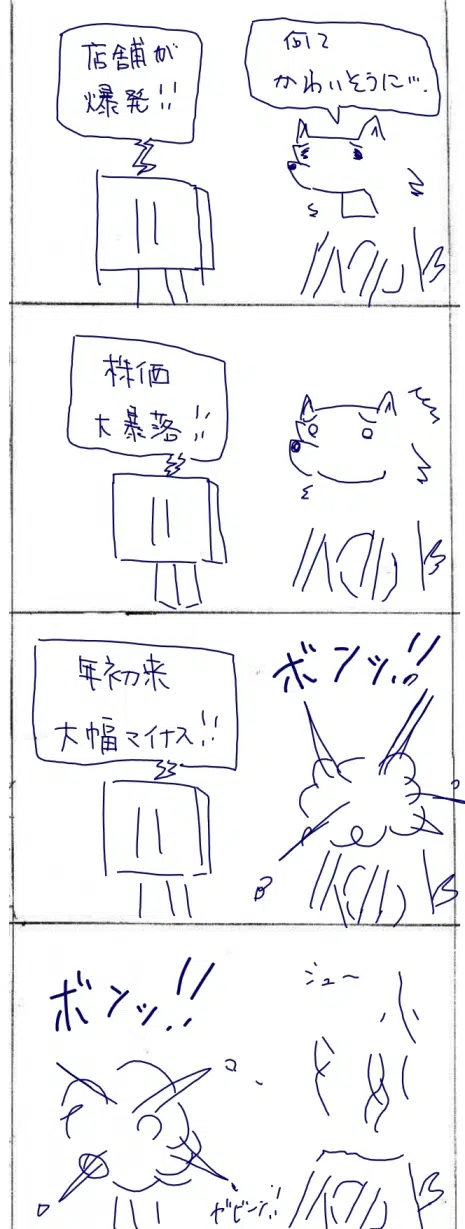 店舗が
爆発!!
何て
かわいそうに…
株価
大暴落!!
年初来
大幅マイナス!!
ボンッ!!
ボンッ!!
ジュ〜
ガビーン!!